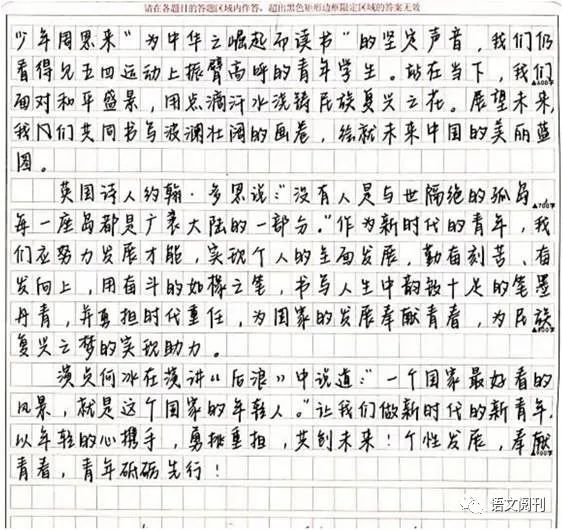 请在各题目的答题区域内作答，超出黑色矩形边框限定区域的答案无效
少年周恩来"为中华之崛起而读书"的坚定声音，我们仍
看得见五四运动上振臂高呼的青年学生。站在当下，我们
▲600字
面对和平盛景，用点滴汗水浇铸民族复兴之花。展望未来，
我们共同书写波澜壮阔的画卷，绘就未来中国的美丽蓝
图。
英国诗人约翰·多恩说："没有人是与世隔绝的孤岛
▲700字
每一座岛都是广袤大陆的一部分。"作为新时代的青年，我
们应努力发展才能，实现个人的全面发展，勤奋刻苦、奋
发向上，用奋斗的如椽之笔，书写人生中韵致十足的笔墨
丹青，并勇担时代重任，为国家的发展奉献青春，为民族
▲800字
复兴之梦的实现助力。
演员何冰在演讲《后浪》中说道："一个国家最好看的
风景，就是这个国家的年轻人。"让我们做新时代的新青年，
以年轻的心携手，勇挑重担，共创未来！个性发展，奉献
▲900字
青春，青年砥砺先行！
语文阅刊